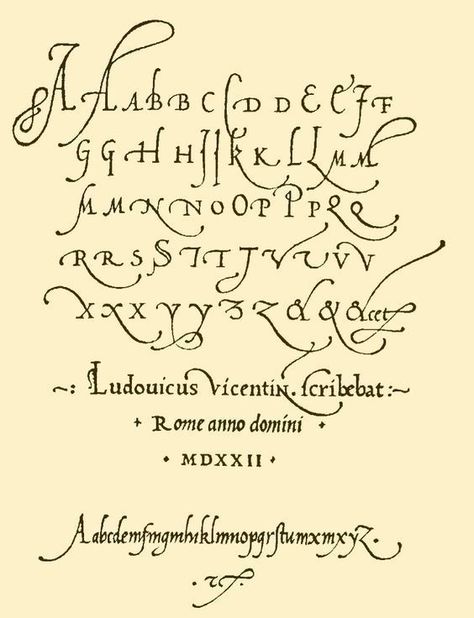 A A A B B C D D E E F F
G G H H I I K K L L M M
M M N N O O P P P Q Q
R R S S T T T V V V V
X X X Y Y Z Z & & &cet
~: Ludouicus Vicentin. scribebat :~
+ Rome anno domini +
· MDXXII ·
Aabcdemfmgmhiklmnopqrſtumxmxyz.